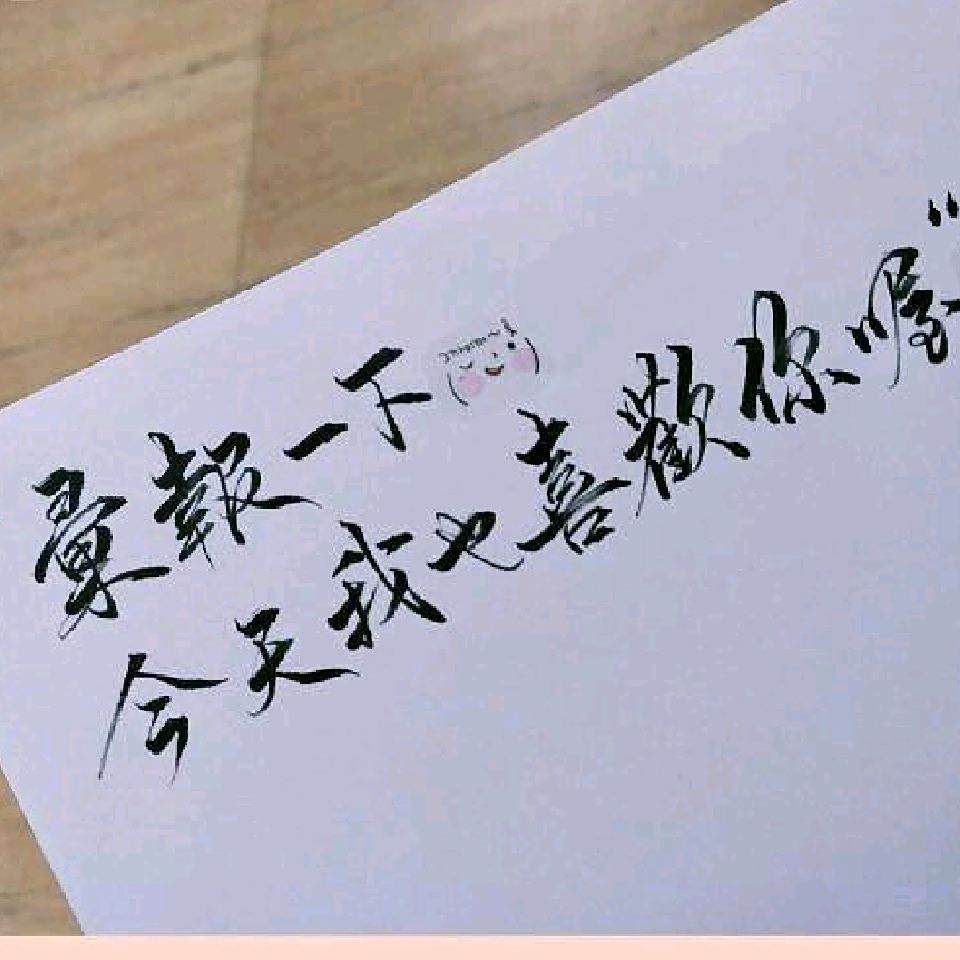 彙報一下
今天我也喜歡你喔"